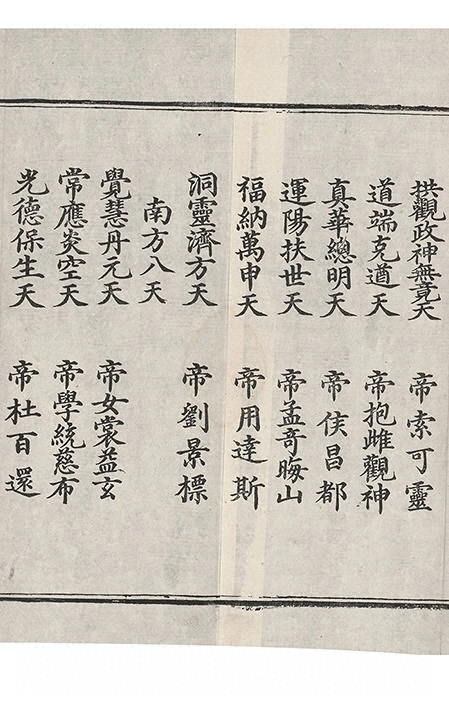 拱觀政神無竟天 帝索可靈
道端克遒天 帝抱雌觀神
真華總明天 帝侯昌都
運陽扶世天 帝孟奇晦山
福納萬申天 帝用達斯
洞靈濟方天 帝劉景標
南方八天
覺慧丹元天 帝女裳益玄
常應炎空天 帝學統慈布
光德保生天 帝杜百還